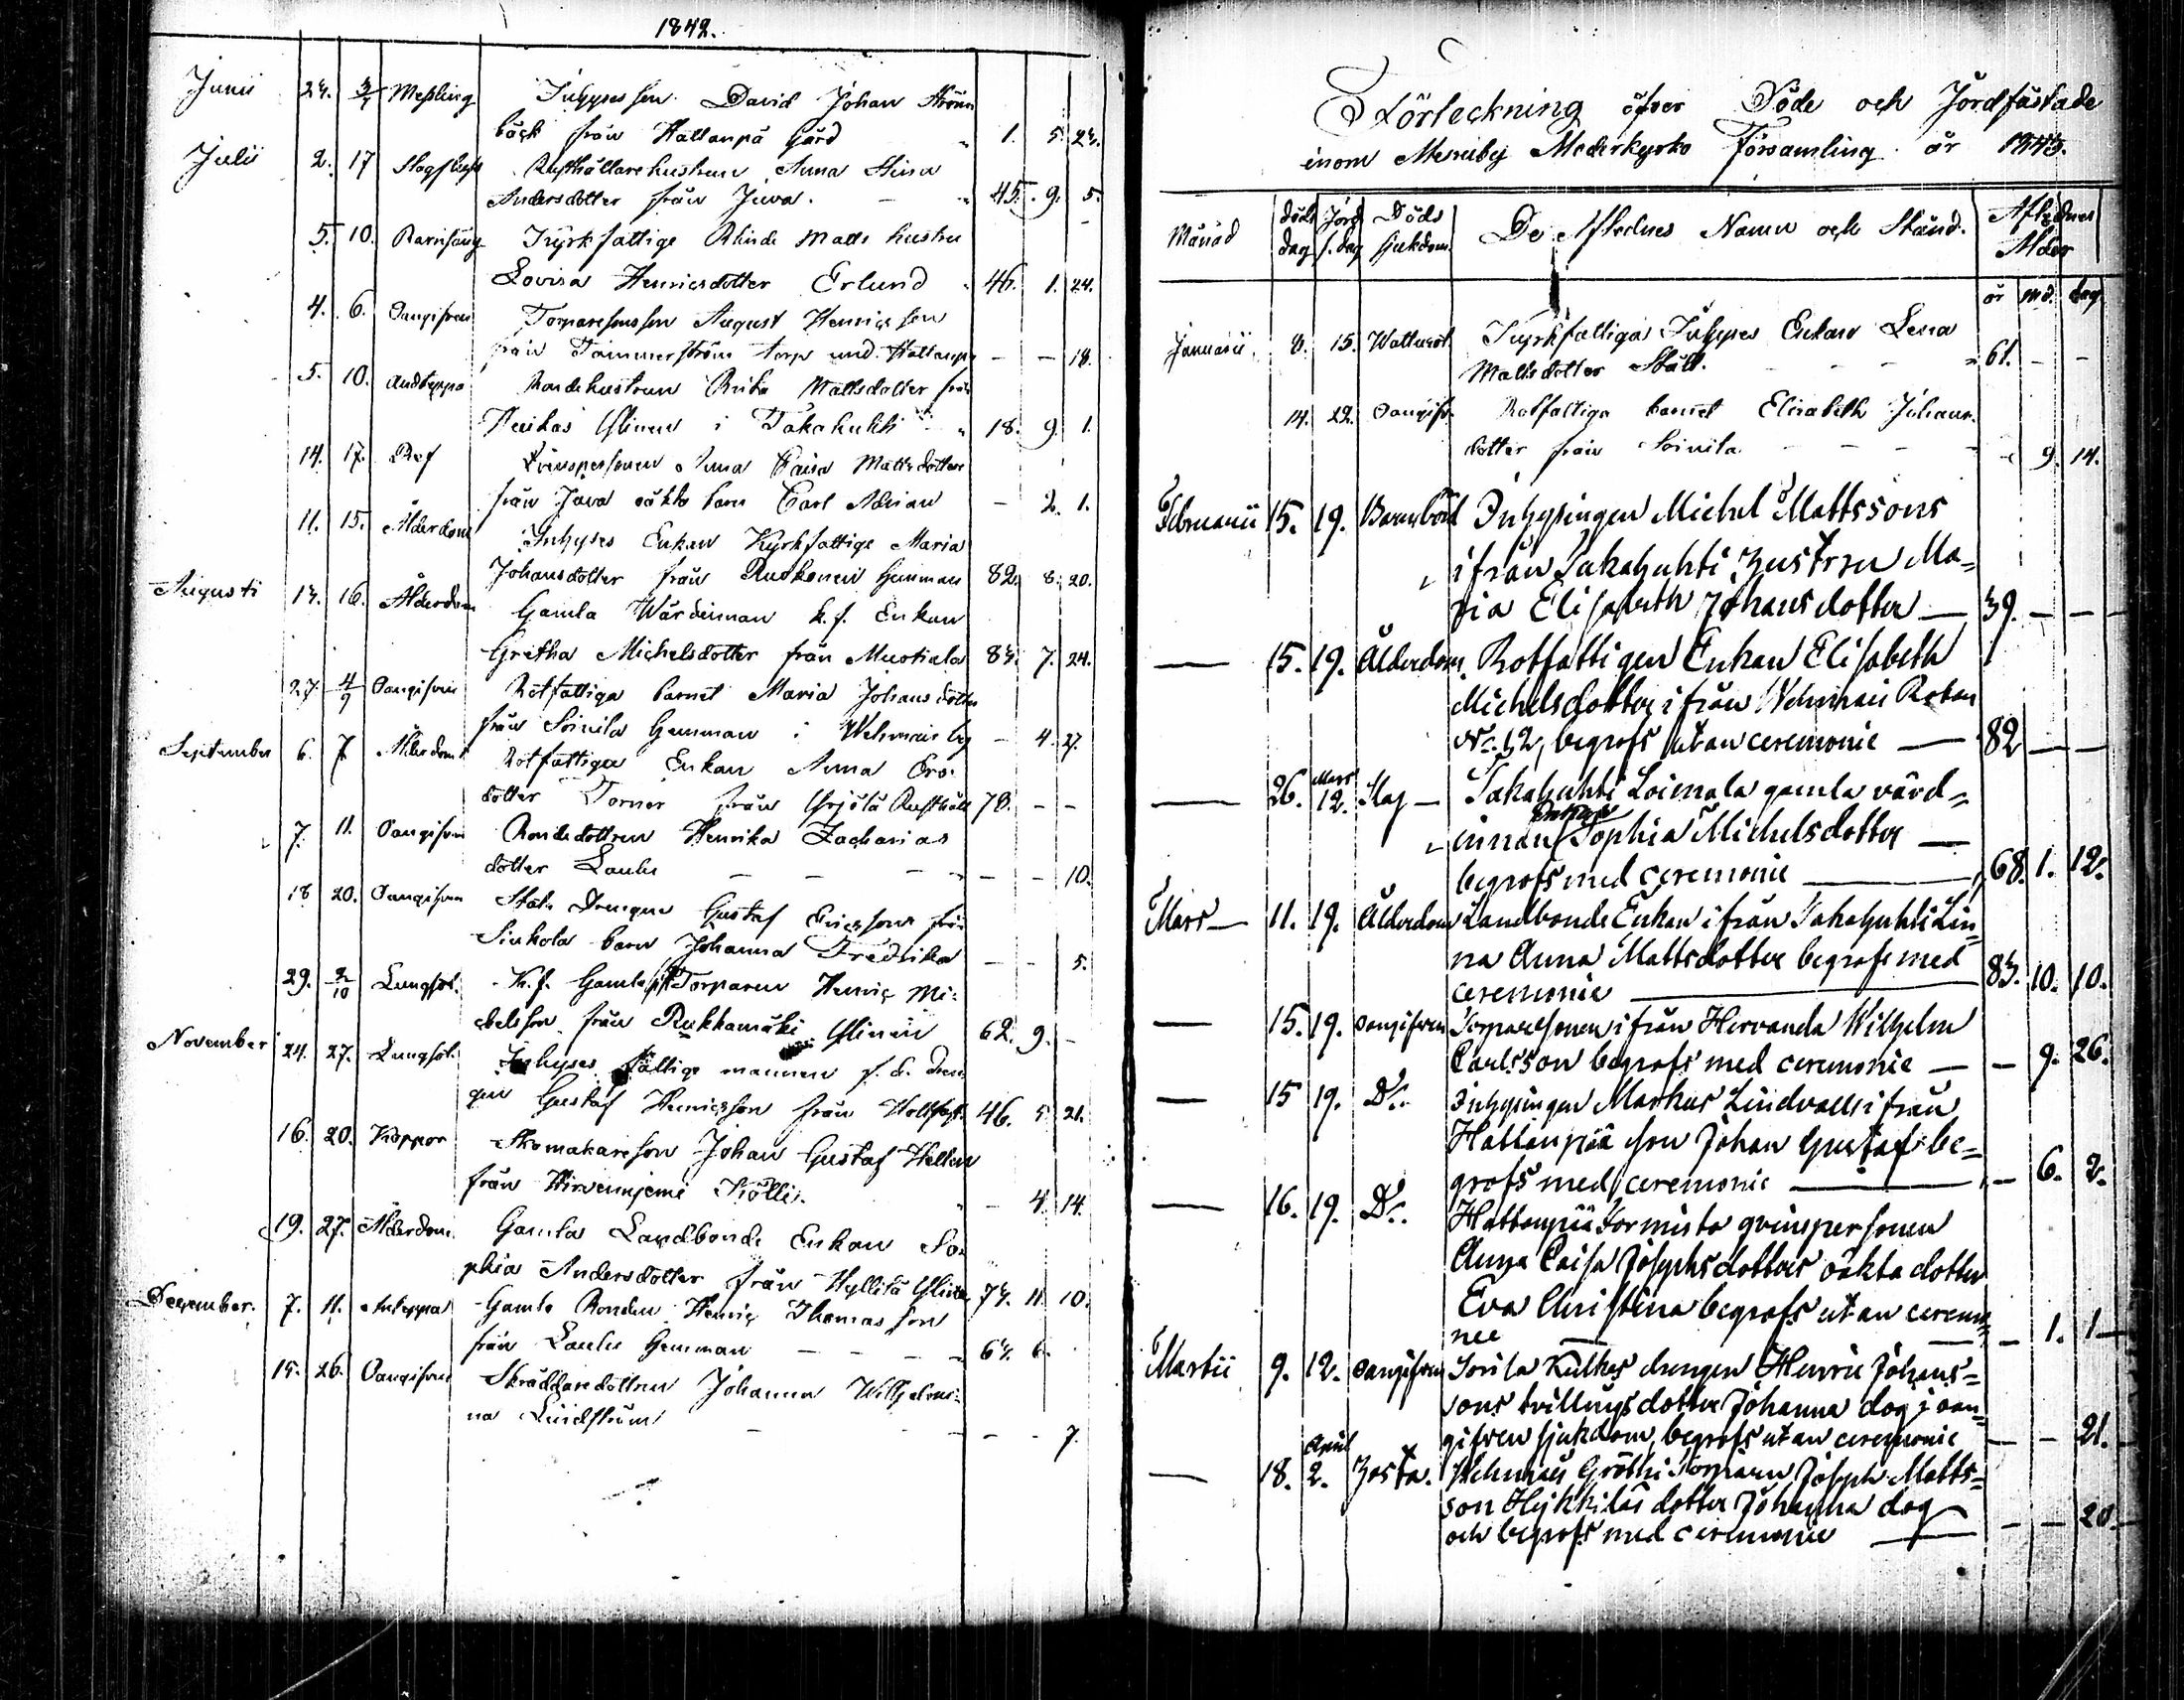 1842.
Junii 24. 3/7 Meßling Inhyses son David Johan Ström
bäck från Hattanpä Gård 1. 5. 24.
Julii 2. 17 Slagfluß Rusthållarehustrun Anna Stina
Andersdotter från Juva. 45. 9. 5.
5. 10. Barnsäng Kyrkfattige Blinde Matts hustru
Lovisa Henricsdotter Erlund 46. 1. 24.
4. 6. Oangifven Torparesonson August Henricsson
från Tammerström torp und. Hattanpä - - 18.
5. 10. Andteppa Bondehustrun Brita Mattsdotter från
Ylinen i Takahuhti 18. 9. 1.
14. 17. Ref Qvinspersonen Anna Caisa Mattsdotters
från Juva oäkta barn Carl Adrian - 2. 1.
11. 15. Ålderdom Inhyses Enkan Kyrkfattige Maria
Johansdotter från Ruskonen Gemman 82. 8. 20.
Augusti 14. 16. Ålderdom Gamla Wärdinnan k.f. Enkan
Gretha Michelsdotter från Muotiala 84. 7. 24.
27. 4/9 Oangifven Rotfattiga barnet Maria Johansdotter
från Soinila Gemman i Wehmais by - 4. 27.
September 6. 7. Ålderdom Rotfattiga Enkan Anna Ers-
dotter Torner från Yrjölä Rusthåll 78. - -
7. 11. Oangifven Bondedottren Henrika Zacharias
dotter Laulu - - - - - 10.
18 20. Oangifven Stat. Drengen Gustaf Ericssons från
Siukola barn Johanna Fredrika - - 5.
29. 2/10 Lungsot. K.f. Gamla Torparen Henric Mi-
chelsson från Rukkamäki Ylinen 62. 9. -
November 24. 27. Lungsot. Inhyses fattige mannen f.d. Dren-
gen Gustaf Henricsson från 46. 5. 21.
16. 20. Koppor Skomakareson Johan Gustaf Hellen
från Hirvenniemi Kölli. - 4. 14.
19. 27. Ålderdom. Gamla Landbonde Enkan So-
phia Andersdotter från Hyllilä Ylinen 74. 11 10.
December. 7. 11. Anteppa Gamle Bonden Henric Thomasson
från Laulu Gemman - - - - 64. 6.
15. 26. Oangifven Skräddaredottren Johanna Wilhelmi-
na Lindström - - - - 7.
Förteckning öfver Döde och Jordfästade
inom Messuby Moderkyrko Församling år 1843.
Månad döds dag Jord f. dag Döds sjukdom De Aflednes Namn och Stånd. Aflednes Ålder
år må. dag
Januarii 8. 15. Wattusot Kyrkfattiga Inhyses Enkan Lena
Mattsdotter Ståll. - - - 61. - -
14. 22. Oangifv. Rotfattiga barnet Elisabeth Johans-
dotter från Soinila - - - - 9. 14.
Februarii 15. 19. Barnsbörd Inhysingen Michel Mattssons
ifrån Takahuhti hustru Ma-
ria Elisabeth Johansdotter — 39. — —
— 15. 19. Ålderdom. Rotfattigen Enkan Elisabeth
Michelsdotter ifrån Wehmais Rotan
No. 12, begrofs utan ceremonie — 82 — —
— 26. Mars 12. Slag — Takahuhti Loimala gamla värd-
innan Enkan Sophia Michelsdotter —
begrofs med ceremonie — 68. 1. 12.
Mars — 11. 19. Ålderdom Landbonde Enkan ifrån Takahuhti Lin-
na Anna Mattsdotter begrofs med
ceremonie — 83. 10. 10.
— 15. 19. oangifven Torparesonen ifrån Hervanda Wilhelm
Carlsson begrofs med ceremonie — — 9. 26.
— 15 19. Do. Inhysingen Markus Lindvalls ifrån
Hattanpää son Johan Gustaf be-
grofs med ceremonie — — 6. 2.
— 16. 19. Do. Hattanpää Tormisto qvinspersonen
Anna Caisa Josephsdotters oäkta dotter
Eva Christina begrofs utan ceremo-
nie — — 1. 1 —
Martii 9. 12. oangifven Sorila Kulkas drengen Henric Johans-
sons tvillingsdotter Johanna dog i oan-
gifven sjukdom, begrofs utan ceremonie — — 21. —
— 18. April 2. Hosta. Wehmais Gröthi Torparen Joseph Matts-
son Heikkiläs dotter Johanna dog
och begrofs med ceremonie — — — 20. —